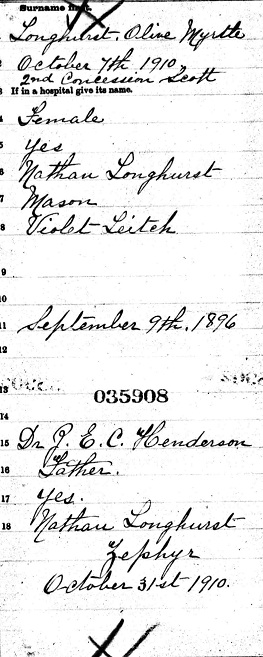 Surname first.
1 Longhurst, Olive Myrtle
2 October 7th 1910,
2nd Concession Scott
3 If in a hospital give its name.
4 Female
5 Yes
6 Nathan Longhurst
7 Mason
8 Violet Leitch
9
10
11 September 9th, 1896
12
13
035908
14
15 Dr J. E. C. Henderson
16 Father.
17 Yes.
18 Nathan Longhurst
Zephyr
October 31st 1910.